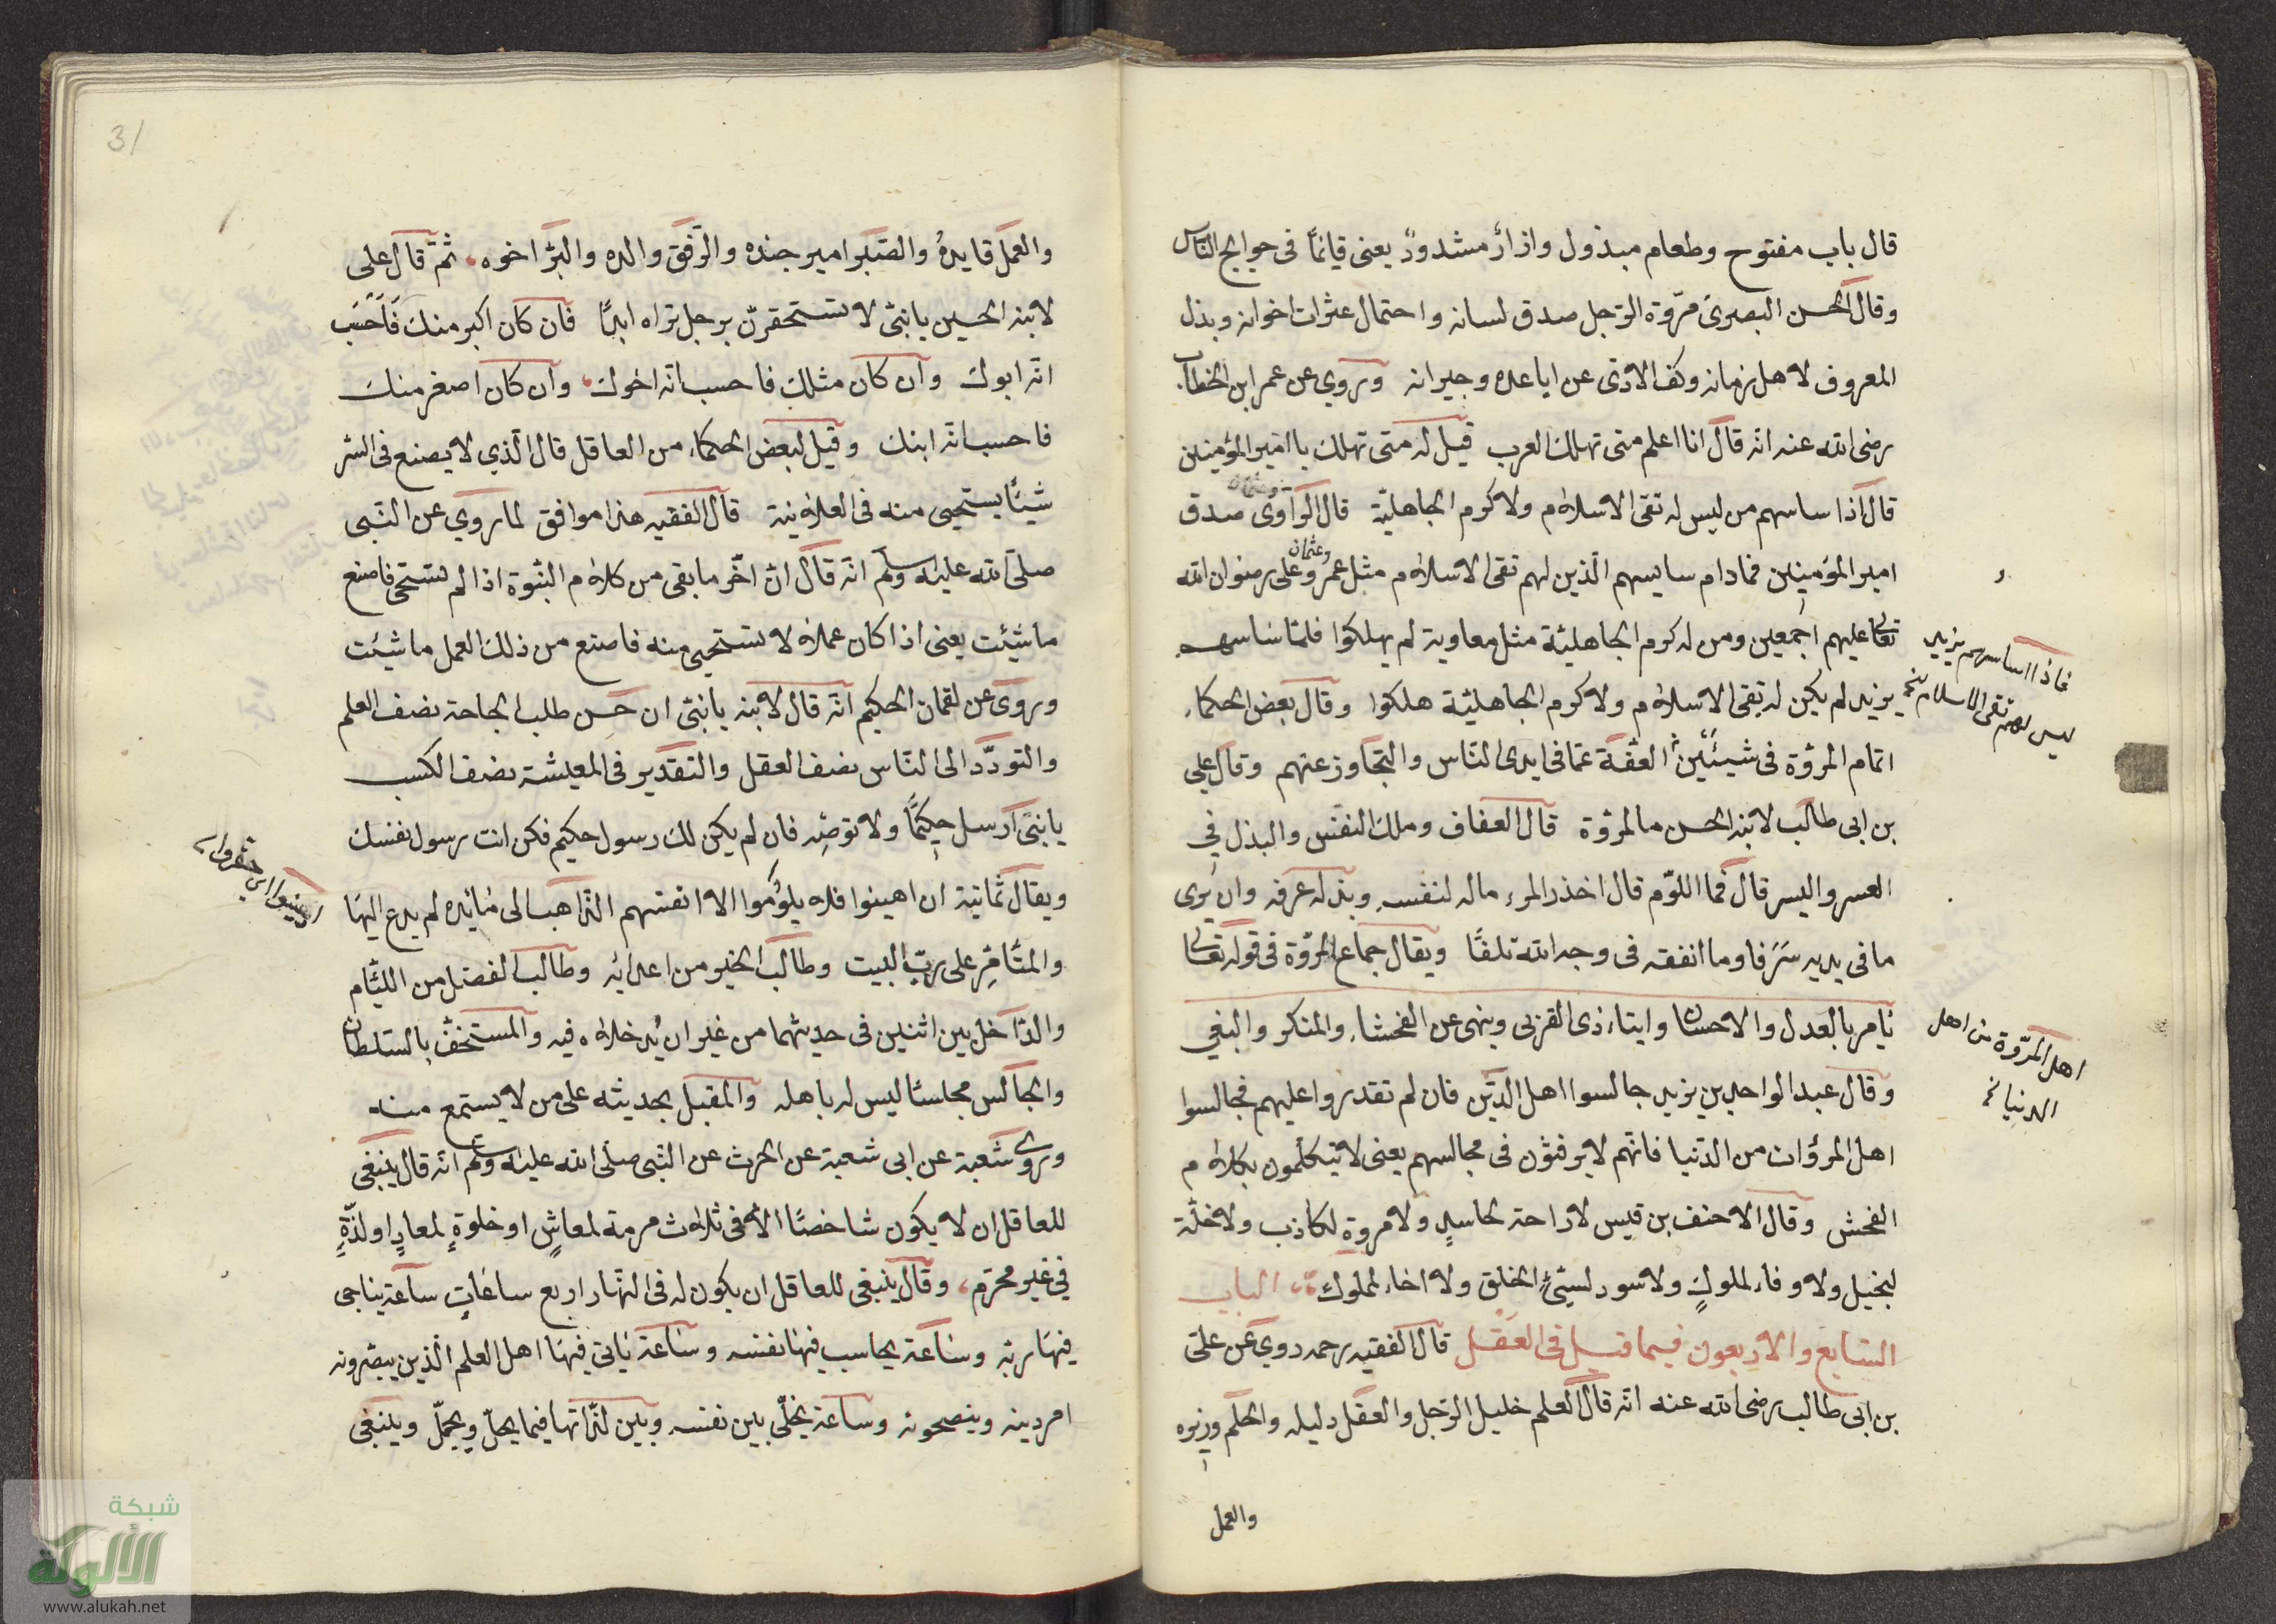 قال باب مفتوح وطعام مبذول وازار مشدود يعنى قائما فى حوايج الناس
وقال الحسن البصرى مروة الرجل صدق لسانه واحتمال عثرات اخوانه وبذل
المعروف لاهل زمانه وكف الاذى عن اباعده وجيرانه وروي عن عمر ابن الخطاب
رضى الله عنه انه قال انا اعلم متى تهلك العرب قيل له متى تهلك يا امير المؤمنين
قال اذا ساسهم من ليس له تقى الاسلام ولا كرم الجاهلية قال الراوى صدق
امير المؤمنين فمادام سايسهم الذين لهم تقى الاسلام مثل عمر وعثمان وعلى رضوان الله
تعالى عليهم اجمعين ومن له كرم الجاهلية مثل معاوية لم يهلكوا فلما ساسهم
يزيد لم يكن له تقى الاسلام ولا كرم الجاهلية هلكوا وقال بعض الحكماء
اتمام المروة فى شيئين العفة عما فى ايدى الناس والتجاوز عنهم وقال على
بن ابى طالب لابنه الحسن ما المروة قال العفاف وملك النفس والبذل في
العسر واليسر قال فما اللوم قال اخذ المرء ماله لنفسه وبذله عرفه وان يرى
ما فى يديه سرفا وما انفقه فى وجه الله تلفا ويقال جماع المروة فى قوله تعالى
يامر بالعدل والاحسان وايتاء ذى القربى وينهى عن الفحشاء والمنكر والبغي
وقال عبد الواحد بن يزيد جالسوا اهل الدين فان لم تقدروا عليهم فجالسوا
اهل المروات من الدنيا فانهم لا يرفثون فى مجالسهم يعنى لا يتكلمون بكلام
الفحش وقال الاحنف بن قيس لا راحة لحاسد ولا مروة لكاذب ولا خلة
لبخيل ولا وفاء لملوك ولا سود لسيئ الخلق ولا اخاء لملوك الباب
السابع والاربعون فيما قيل فى العقل قال الفقيه رحمه روي عن على
بن ابى طالب رضى الله عنه انه قال العلم خليل الرجل والعقل دليله والحلم وزيره
والعمل
فاذا اساسهم يزيد
ليس لهم تقى الاسلام نخ
اهل المروة من اهل
الدنيا نخ
31
والعمل قايده والصبر امير جنده والرفق والده والبر اخوه ثم قال على
لابنه الحسين يا بنى لا تستحقرن برجل تراه ابدا فان كان اكبر منك فاحسب
انه ابوك وان كان مثلك فاحسب انه اخوك وان كان اصغر منك
فاحسب انه ابنك وقيل لبعض الحكماء من العاقل قال الذي لا يصنع فى السر
شيئا يستحيى منه فى العلانية قال الفقيه هذا موافق لما روي عن النبى
صلى الله عليه وسلم انه قال ان اخر ما بقى من كلام النبوة اذا لم تستحى فاصنع
ما شيئت يعنى اذا كان عملا لا تستحيى منه فاصنع من ذلك العمل ما شيئت
وروى عن لقمان الحكيم انه قال لابنه يا بنى ان حسن طلب الحاجة نصف العلم
والتودد الى الناس نصف العقل والتقدير فى المعيشة نصف الكسب
يا بنى ارسل حكيما ولا توصه فان لم يكن لك رسول حكيم فكن انت رسول نفسك
ويقال ثمانية ان اهينوا فلا يلوموا الا انفسهم الذاهب الى مائدة لم يدع اليها
والمتامر على رب البيت وطالب الخير من اعدائه وطالب الفضل من اللئام
والداخل بين اثنين فى حديثهما من غير ان يدخلاه فيه والمستخف بالسلطان
والجالس مجلسا ليس له باهله والمقبل بحديثه على من لا يستمع منه
وروى شعبة عن ابى شعبة عن الحرث عن النبى صلى الله عليه وسلم انه قال ينبغى
للعاقل ان لا يكون شاخصا الا فى ثلاث مرمة لمعاش او خلوة لمعاد او لذة
في غير محرم وقال ينبغى للعاقل ان يكون له فى النهار اربع ساعات ساعة يناجى
فيها ربه وساعة يحاسب فيها نفسه وساعة ياتى فيها اهل العلم الذين يبصرونه
امر دينه وينصحونه وساعة يخلى بين نفسه وبين لذاتها فيما يحل ويجمل وينبغى
شبكة
الألوكة
www.alukah.net